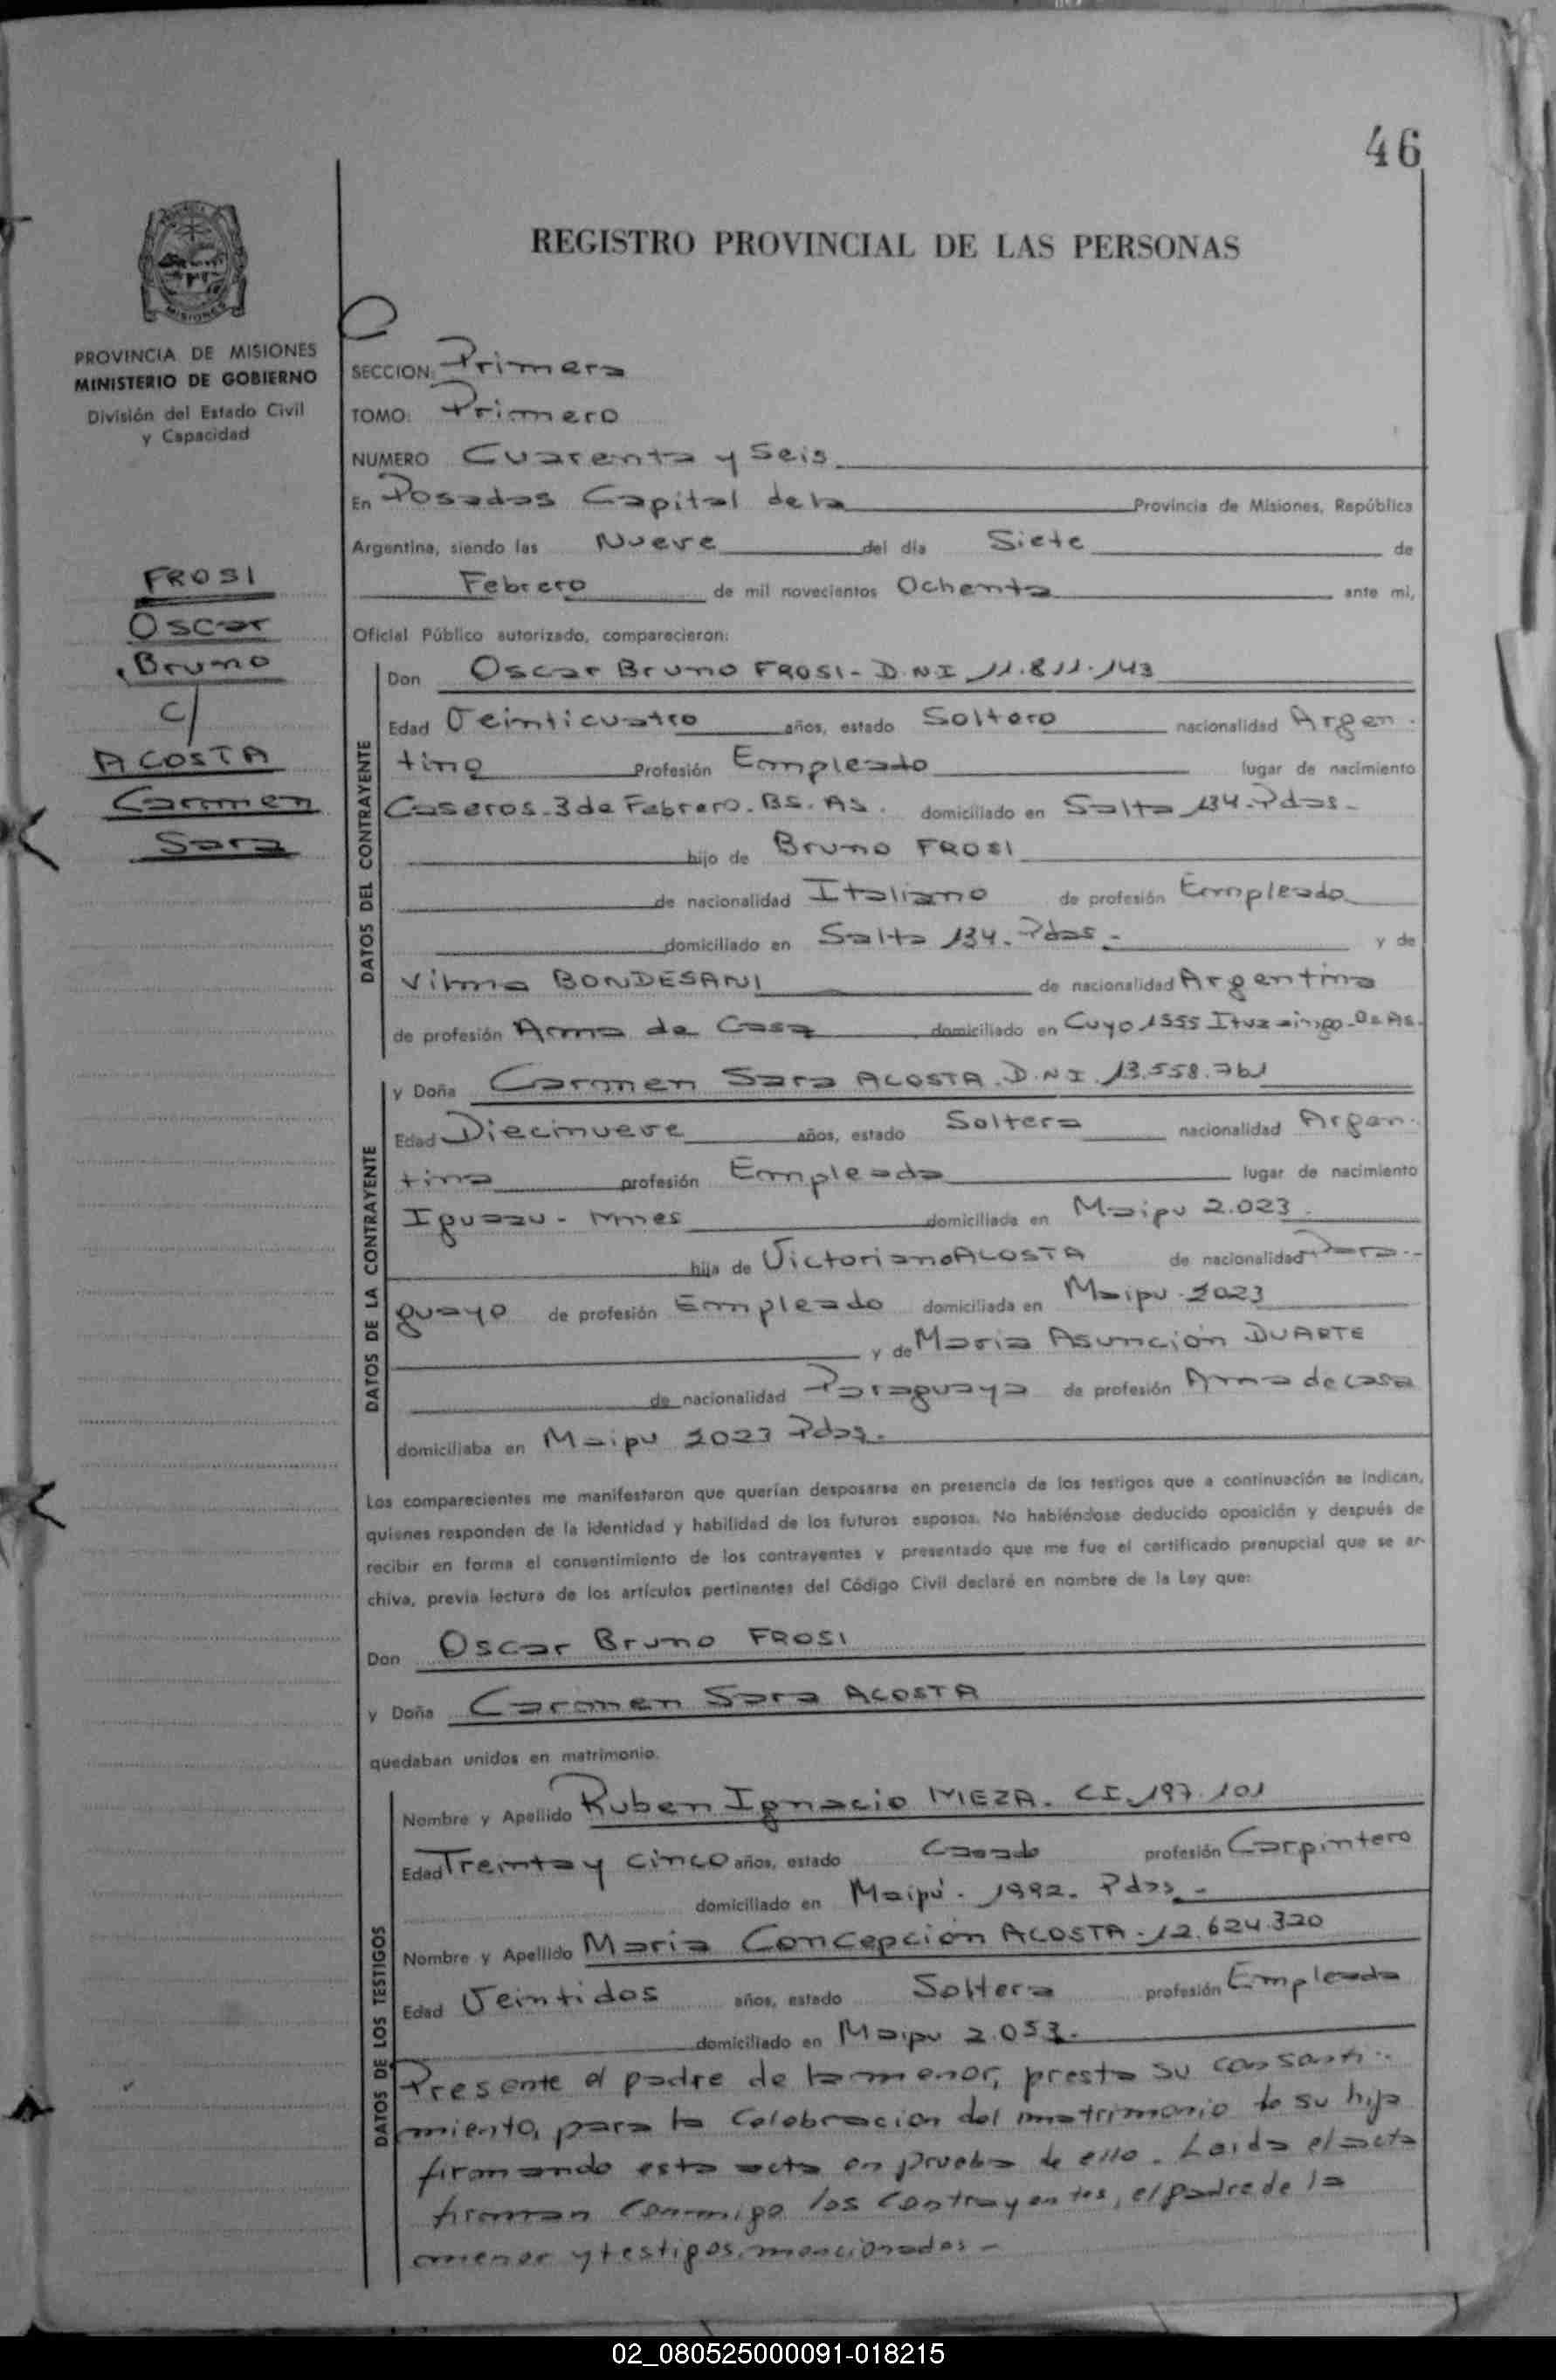 46
REGISTRO PROVINCIAL DE LAS PERSONAS
MISIONES
PROVINCIA DE MISIONES
MINISTERIO DE GOBIERNO
División del Estado Civil
y Capacidad
FROSI
Oscar
Bruno
c/
ACOSTA
Carmen
Sara
SECCION: Primera
TOMO: Primero
NUMERO Cuarenta y Seis
En Posadas Capital de la Provincia de Misiones, República
Argentina, siendo las Nueve del día Siete de
Febrero de mil novecientos Ochenta ante mi,
Oficial Público autorizado, comparecieron:
DATOS DEL CONTRAYENTE
Don Oscar Bruno FROSI - D.N.I 11.811.143
Edad Veinticuatro años, estado Soltero nacionalidad Argen-
tino Profesión Empleado lugar de nacimiento
Caseros. 3 de Febrero. BS. AS. domiciliado en Salta 134. Pdas-
hijo de Bruno FROSI
de nacionalidad Italiano de profesión Empleado
domiciliado en Salta 134. Pdas- y de
Vilma BONDESANI de nacionalidad Argentina
de profesión Ama de Casa domiciliado en Cuyo 1555 Ituzaingo. Bs As.
DATOS DE LA CONTRAYENTE
y Doña Carmen Sara ACOSTA. D.N.I. 13.558.761
Edad Diecinueve años, estado Soltera nacionalidad Argen-
tina profesión Empleada lugar de nacimiento
Iguazu - Mnes domiciliada en Maipu 2.023.
hija de Victoriano ACOSTA de nacionalidad Para-
guayo de profesión Empleado domiciliada en Maipu 2023
y de Maria Asunción DUARTE
de nacionalidad Paraguaya de profesión Ama de casa
domiciliaba en Maipu 2023 Pdas.
Los comparecientes me manifestaron que querían desposarse en presencia de los testigos que a continuación se indican,
quienes responden de la identidad y habilidad de los futuros esposos. No habiéndose deducido oposición y después de
recibir en forma el consentimiento de los contrayentes y presentado que me fue el certificado prenupcial que se ar-
chiva, previa lectura de los artículos pertinentes del Código Civil declaré en nombre de la Ley que:
Don Oscar Bruno FROSI
y Doña Carmen Sara ACOSTA
quedaban unidos en matrimonio.
DATOS DE LOS TESTIGOS
Nombre y Apellido Ruben Ignacio MEZA. CI. 197.101
Edad Treinta y cinco años, estado Casado profesión Carpintero
domiciliado en Maipú. 1992. Pdas-
Nombre y Apellido Maria Concepción ACOSTA. 12.624.320
Edad Veintidos años, estado Soltera profesión Empleada
domiciliado en Maipu 2.053.
Presente el padre de la menor, presta su consenti-
miento, para la Celebracion del matrimonio de su hija
firmando esta acta en prueba de ello. Leida el acta
firman conmigo los Contrayentes, el padre de la
menor y testigos mencionados-
02_080525000091-018215